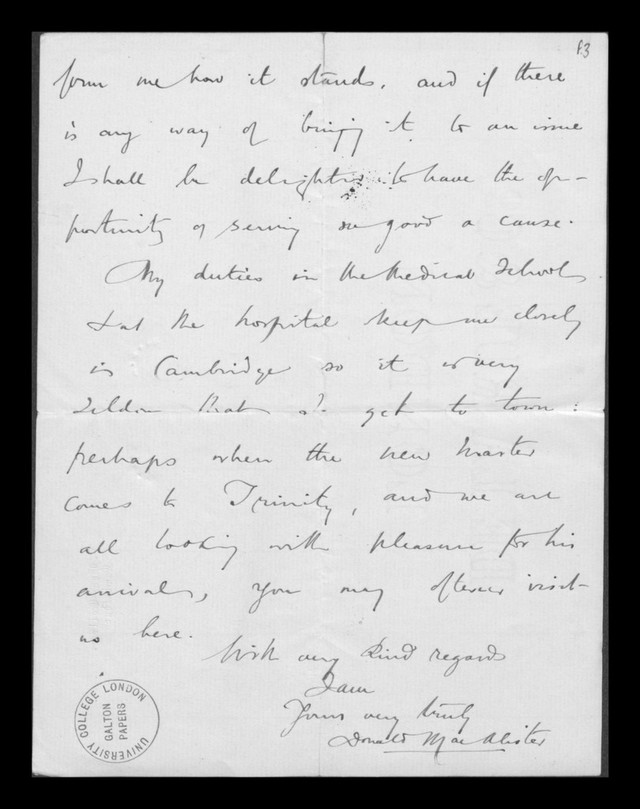 f.3
form me how it stands, and if there
is any way of bringing it to an issue
I shall be delighted to have the op-
portunity of serving so good a cause.
My duties in the Medical School
& at the hospital keep me closely
in Cambridge so it is very
seldom that I get to town:
perhaps when the new Master
comes to Trinity, and we are
all looking with pleasure for his
arrival, you may oftener visit
us here.
With very kind regards
I am
Yours very truly
Donald MacAlister
UNIVERSITY COLLEGE LONDON
GALTON
PAPERS